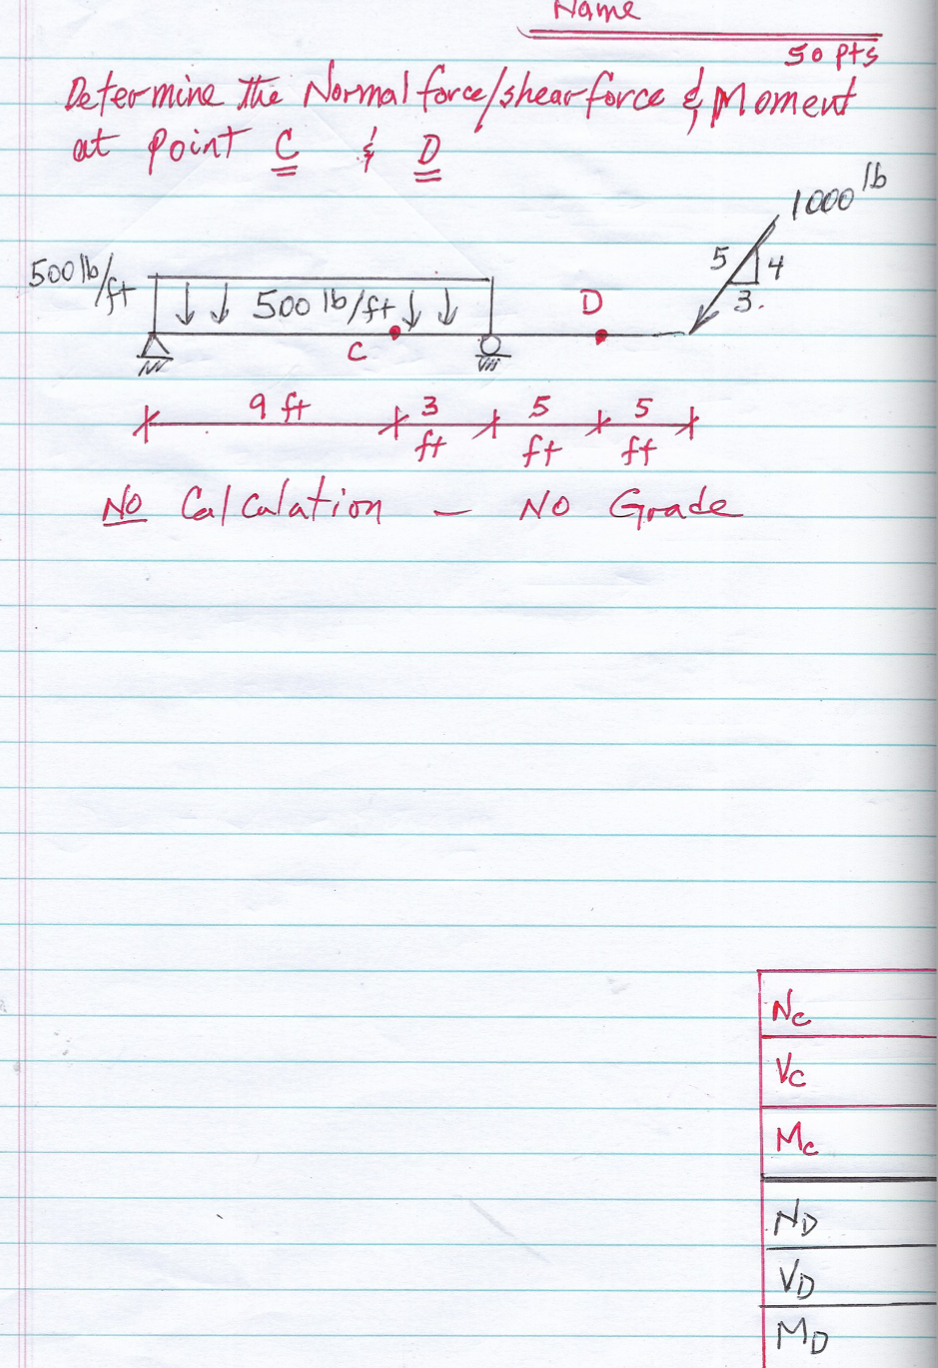 Name
50 pts
Determine the Normal force/shear force & Moment
at point C & D
1000 lb
500 lb/ft
5 4
3.
500 lb/ft
D
C
9 ft 3 ft 5 ft 5 ft
No Calculation - No Grade
Nc
Vc
Mc
ND
VD
MD